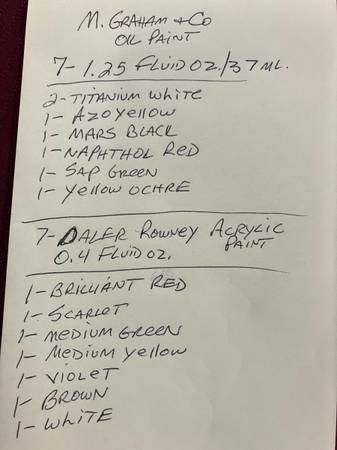 M. GRAHAM & CO
OIL PAINT
7- 1.25 FLUID OZ./37 ML.
2- TITANIUM WHITE
1- AZO YELLOW
1- MARS BLACK
1- NAPHTHOL RED
1- SAP GREEN
1- YELLOW OCHRE
7- DALER ROWNEY ACRYLIC
PAINT
0.4 FLUID OZ.
1- BRILLIANT RED
1- SCARLET
1- MEDIUM GREEN
1- MEDIUM YELLOW
1- VIOLET
1- BROWN
1- WHITE